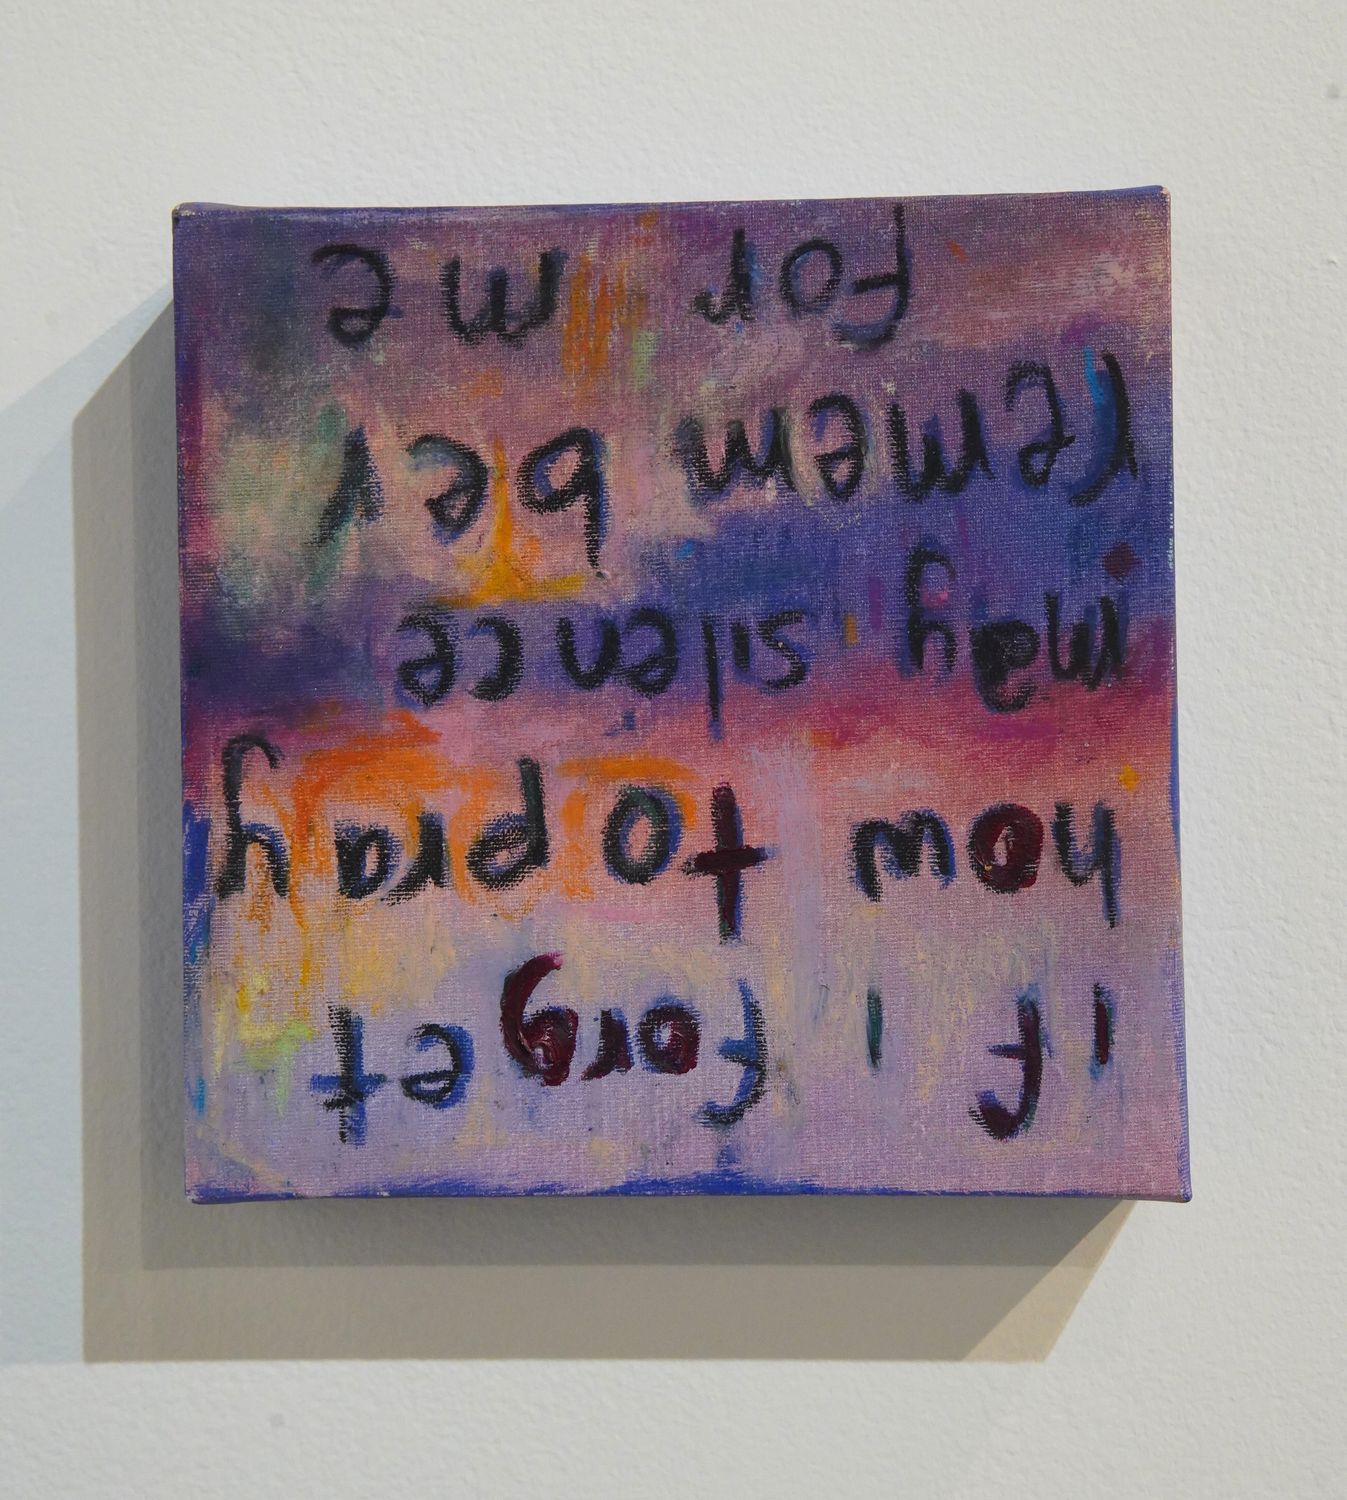 if I forget
how to pray
may silence
remem ber
for me